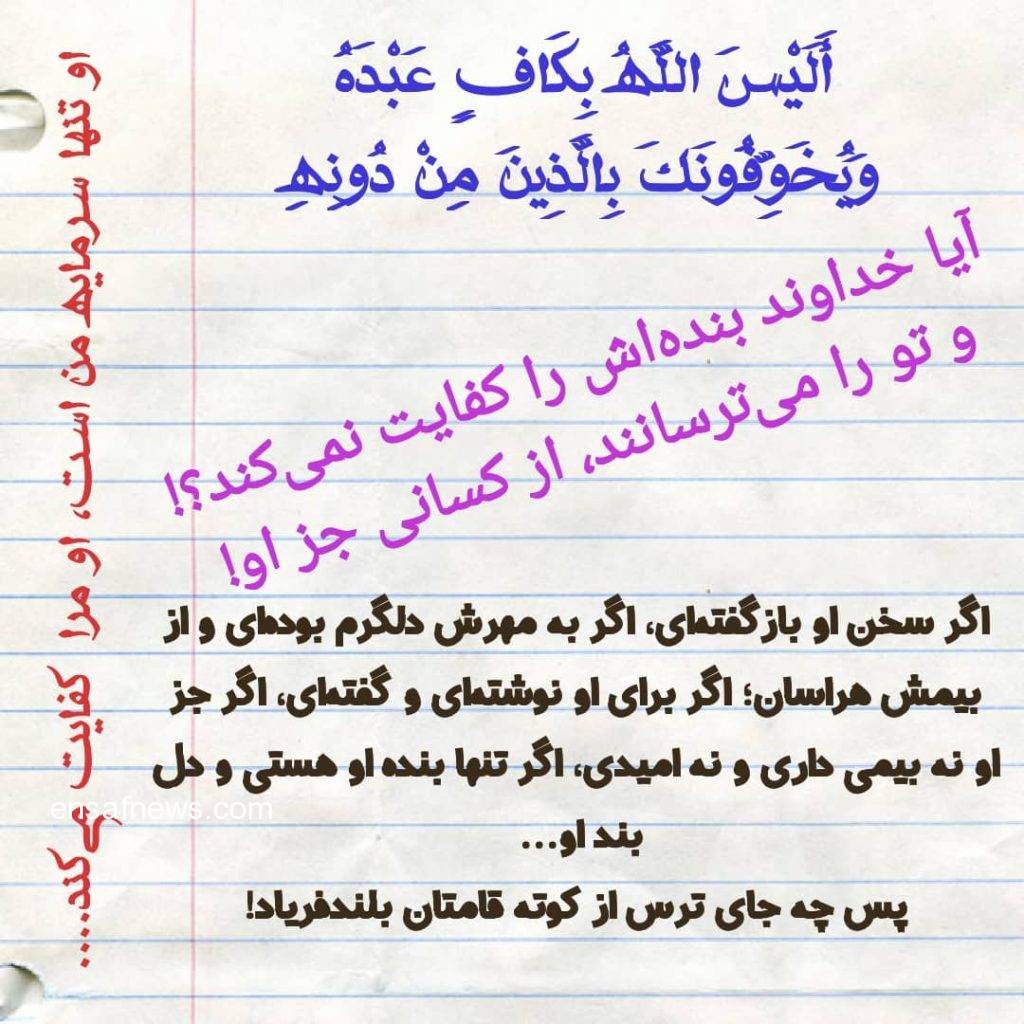 أَلَيْسَ اللَّهُ بِكَافٍ عَبْدَهُ
وَيُخَوِّفُونَكَ بِالَّذِينَ مِنْ دُونِهِ
آیا خداوند بنده‌اش را کفایت نمی‌کند؟!
و تو را می‌ترسانند، از کسانی جز او!
اگر سخن او بازگفته‌ای، اگر به مهرش دلگرم بوده‌ای و از
بیمش هراسان؛ اگر برای او نوشته‌ای و گفته‌ای، اگر جز
او نه بیمی داری و نه امیدی، اگر تنها بنده او هستی و دل
بند او...
پس چه جای ترس از کوته قامتان بلندفریاد!
او تنها سرمایه من است، او مرا کفایت می‌کند....
ensafnews.com